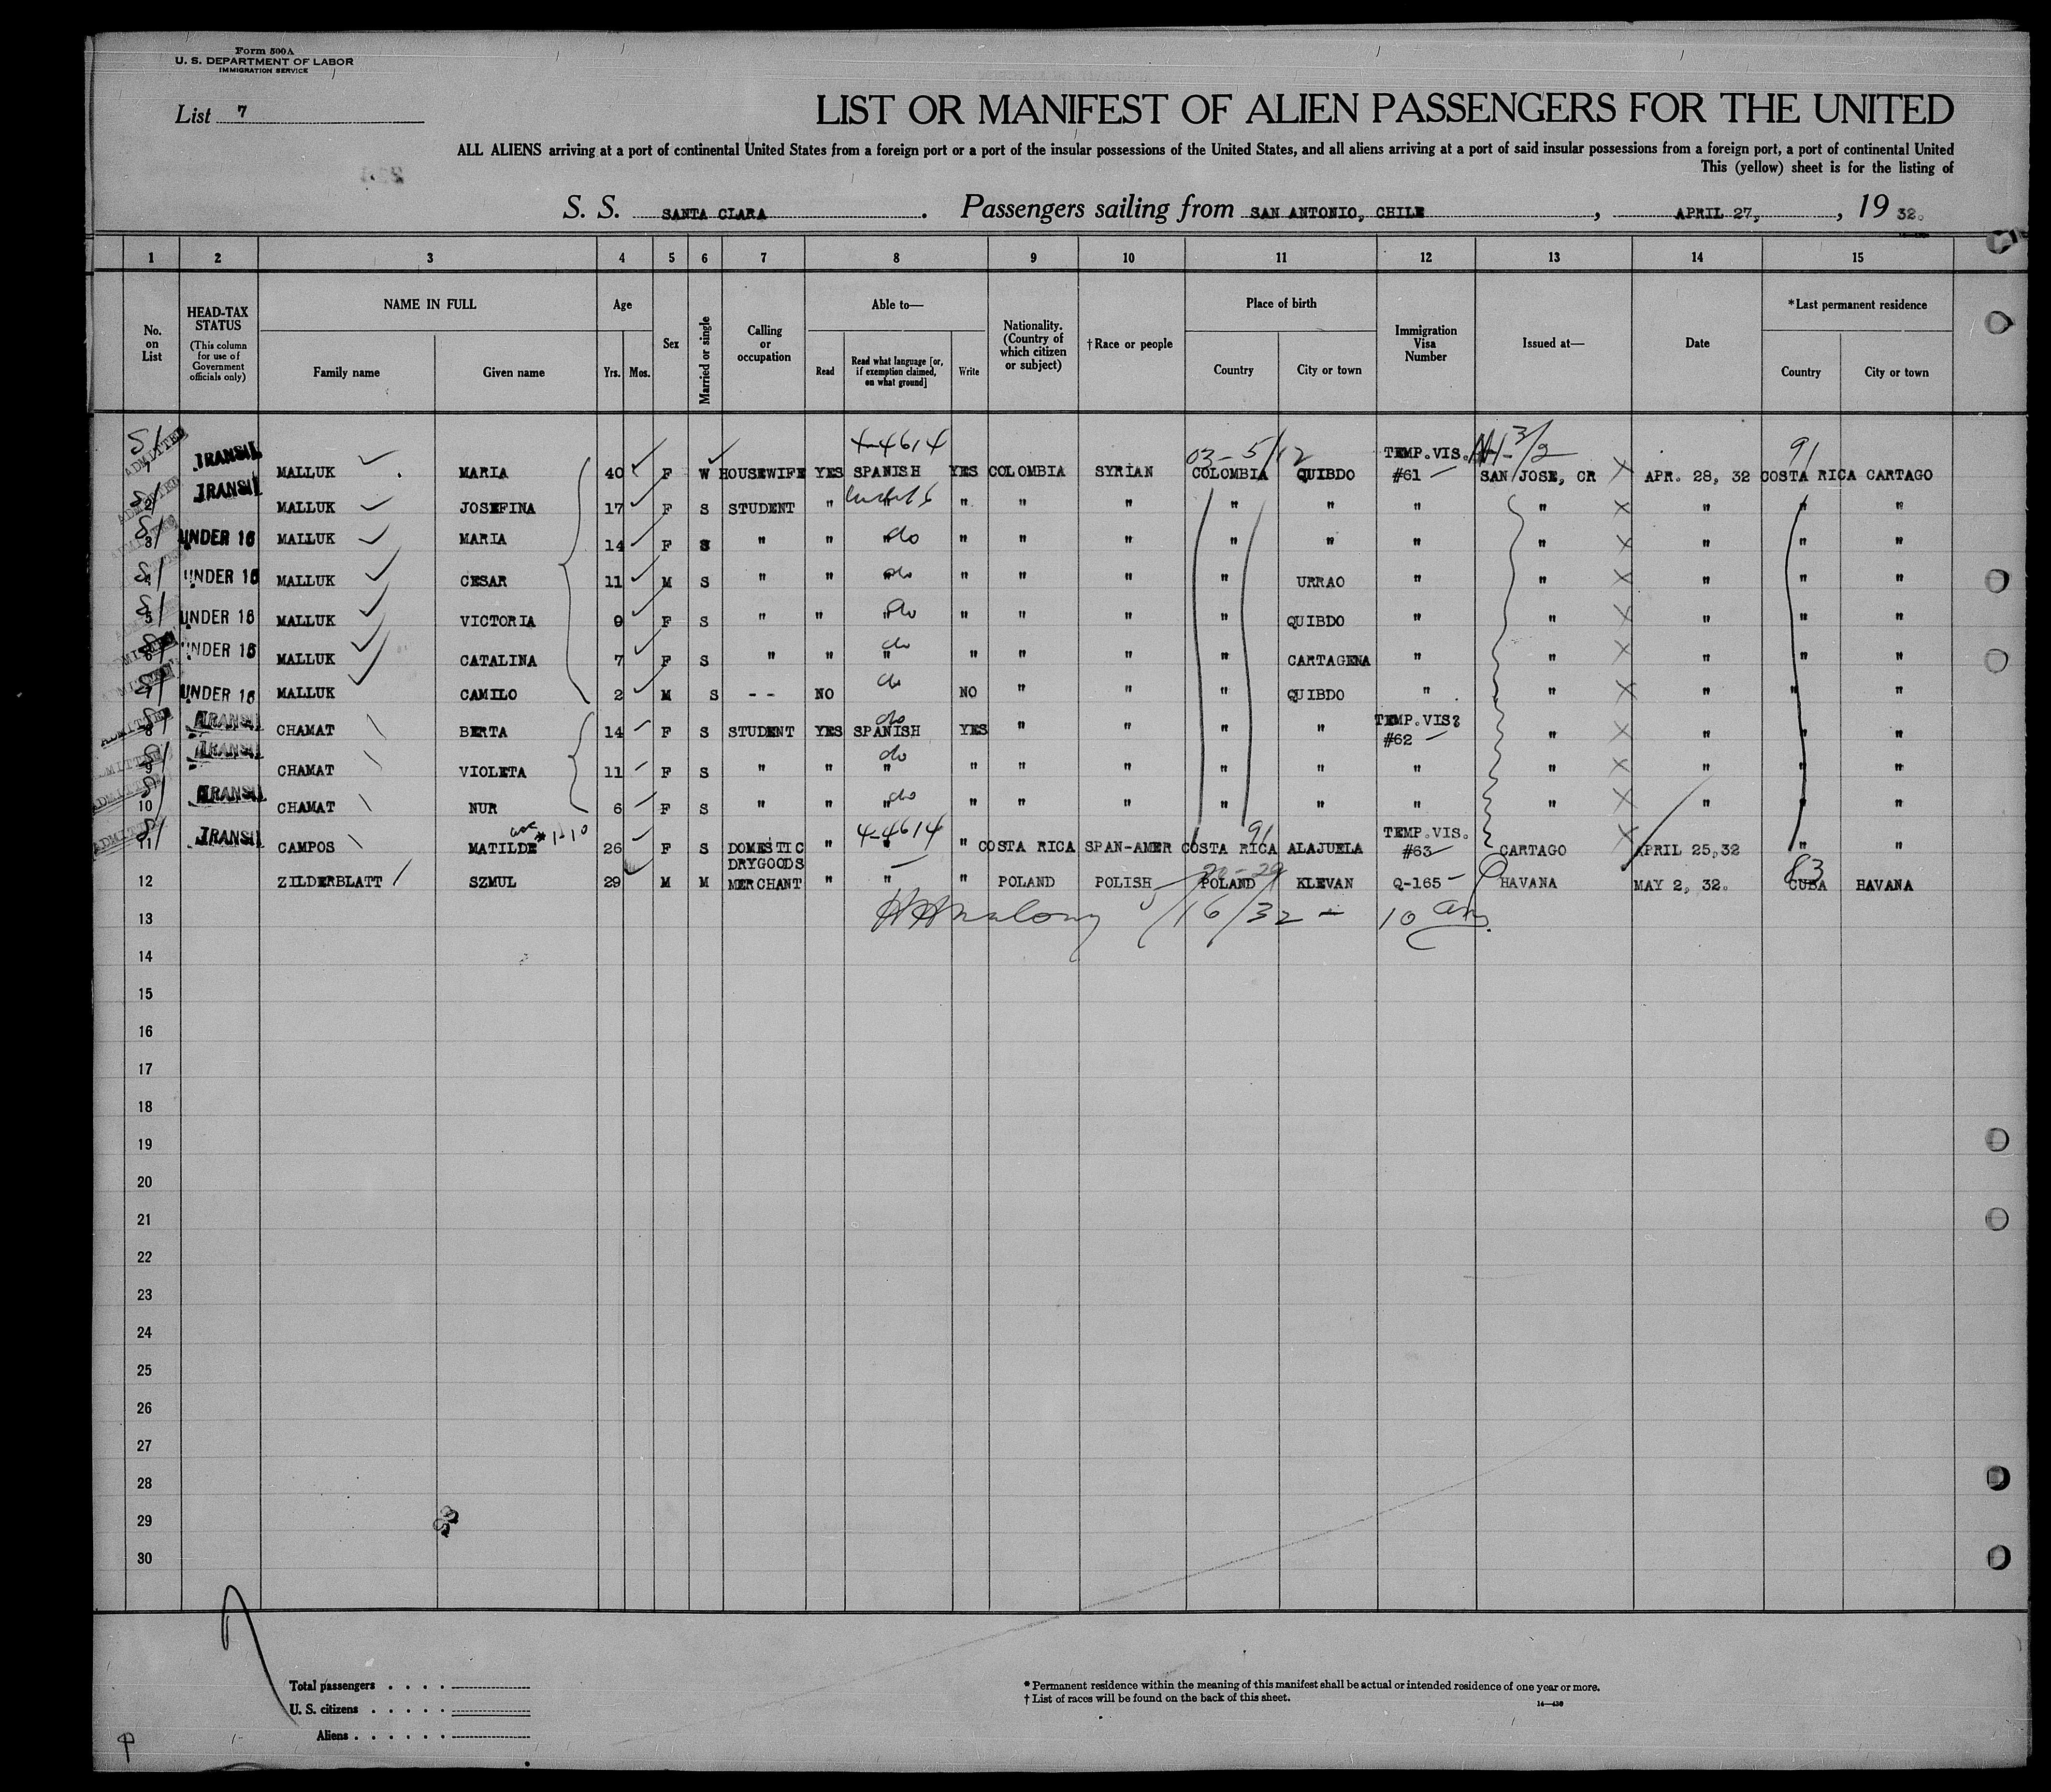 Form 500A
U. S. DEPARTMENT OF LABOR
IMMIGRATION SERVICE
List 7
LIST OR MANIFEST OF ALIEN PASSENGERS FOR THE UNITED
ALL ALIENS arriving at a port of continental United States from a foreign port or a port of the insular possessions of the United States, and all aliens arriving at a port of said insular possessions from a foreign port, a port of continental United
This (yellow) sheet is for the listing of
S. S. SANTA CLARA. Passengers sailing from SAN ANTONIO, CHILE, APRIL 27,, 19 32.
1 2 3 4 5 6 7 8 9 10 11 12 13 14 15
No. on List
HEAD-TAX STATUS
(This column for use of Government officials only)
NAME IN FULL
Family name Given name
Age
Yrs. Mos.
Sex
Married or single
Calling or occupation
Able to—
Read
Read what language [or, if exemption claimed, on what ground]
Write
Nationality. (Country of which citizen or subject)
†Race or people
Place of birth
Country City or town
Immigration Visa Number
Issued at—
Date
*Last permanent residence
Country City or town
4-4614 03-5/12 TEMP.VIS. 3/2 91
ADMITTED TRANSIT MALLUK MARIA 40 F W HOUSEWIFE YES SPANISH YES COLOMBIA SYRIAN COLOMBIA QUIBDO #61 SAN JOSE, CR APR. 28, 32 COSTA RICA CARTAGO
2 TRANSIT MALLUK JOSEFINA 17 F S STUDENT " " " " " " " " " " " "
3 UNDER 16 MALLUK MARIA 14 F S " " " do " " " " " " " " " "
4 UNDER 16 MALLUK CESAR 11 M S " " " do " " " " URRAO " " " " "
5 UNDER 16 MALLUK VICTORIA 9 F S " " " do " " " " QUIBDO " " " " "
6 UNDER 16 MALLUK CATALINA 7 F S " " " do " " " " CARTAGENA " " " " "
7 UNDER 16 MALLUK CAMILO 2 M S -- NO do NO " " " QUIBDO " " " " "
8 TRANSIT CHAMAT BERTA 14 F S STUDENT YES do SPANISH YES " " " " TEMP.VIS. #62 " " " "
9 TRANSIT CHAMAT VIOLETA 11 F S " " " do " " " " " " " " " "
10 TRANSIT CHAMAT NUR 6 F S " " " do " " " " " " " " " "
11 TRANSIT CAMPOS MATILDE 26 F S DOMESTIC " 4-4614 " " COSTA RICA SPAN-AMER COSTA RICA 91 ALAJUELA TEMP.VIS. #63 CARTAGO APRIL 25,32 " "
12 ZILDERBLATT SZMUL 29 M M DRYGOODS MERCHANT " " " POLAND POLISH POLAND KLEVAN Q-165 HAVANA MAY 2, 32. 83 CUBA HAVANA
13 5/16/32 - 10 am
14
15
16
17
18
19
20
21
22
23
24
25
26
27
28
29
30
Total passengers . . . .
U. S. citizens . . . . .
Aliens . . . . . .
* Permanent residence within the meaning of this manifest shall be actual or intended residence of one year or more.
† List of races will be found on the back of this sheet.
14—430